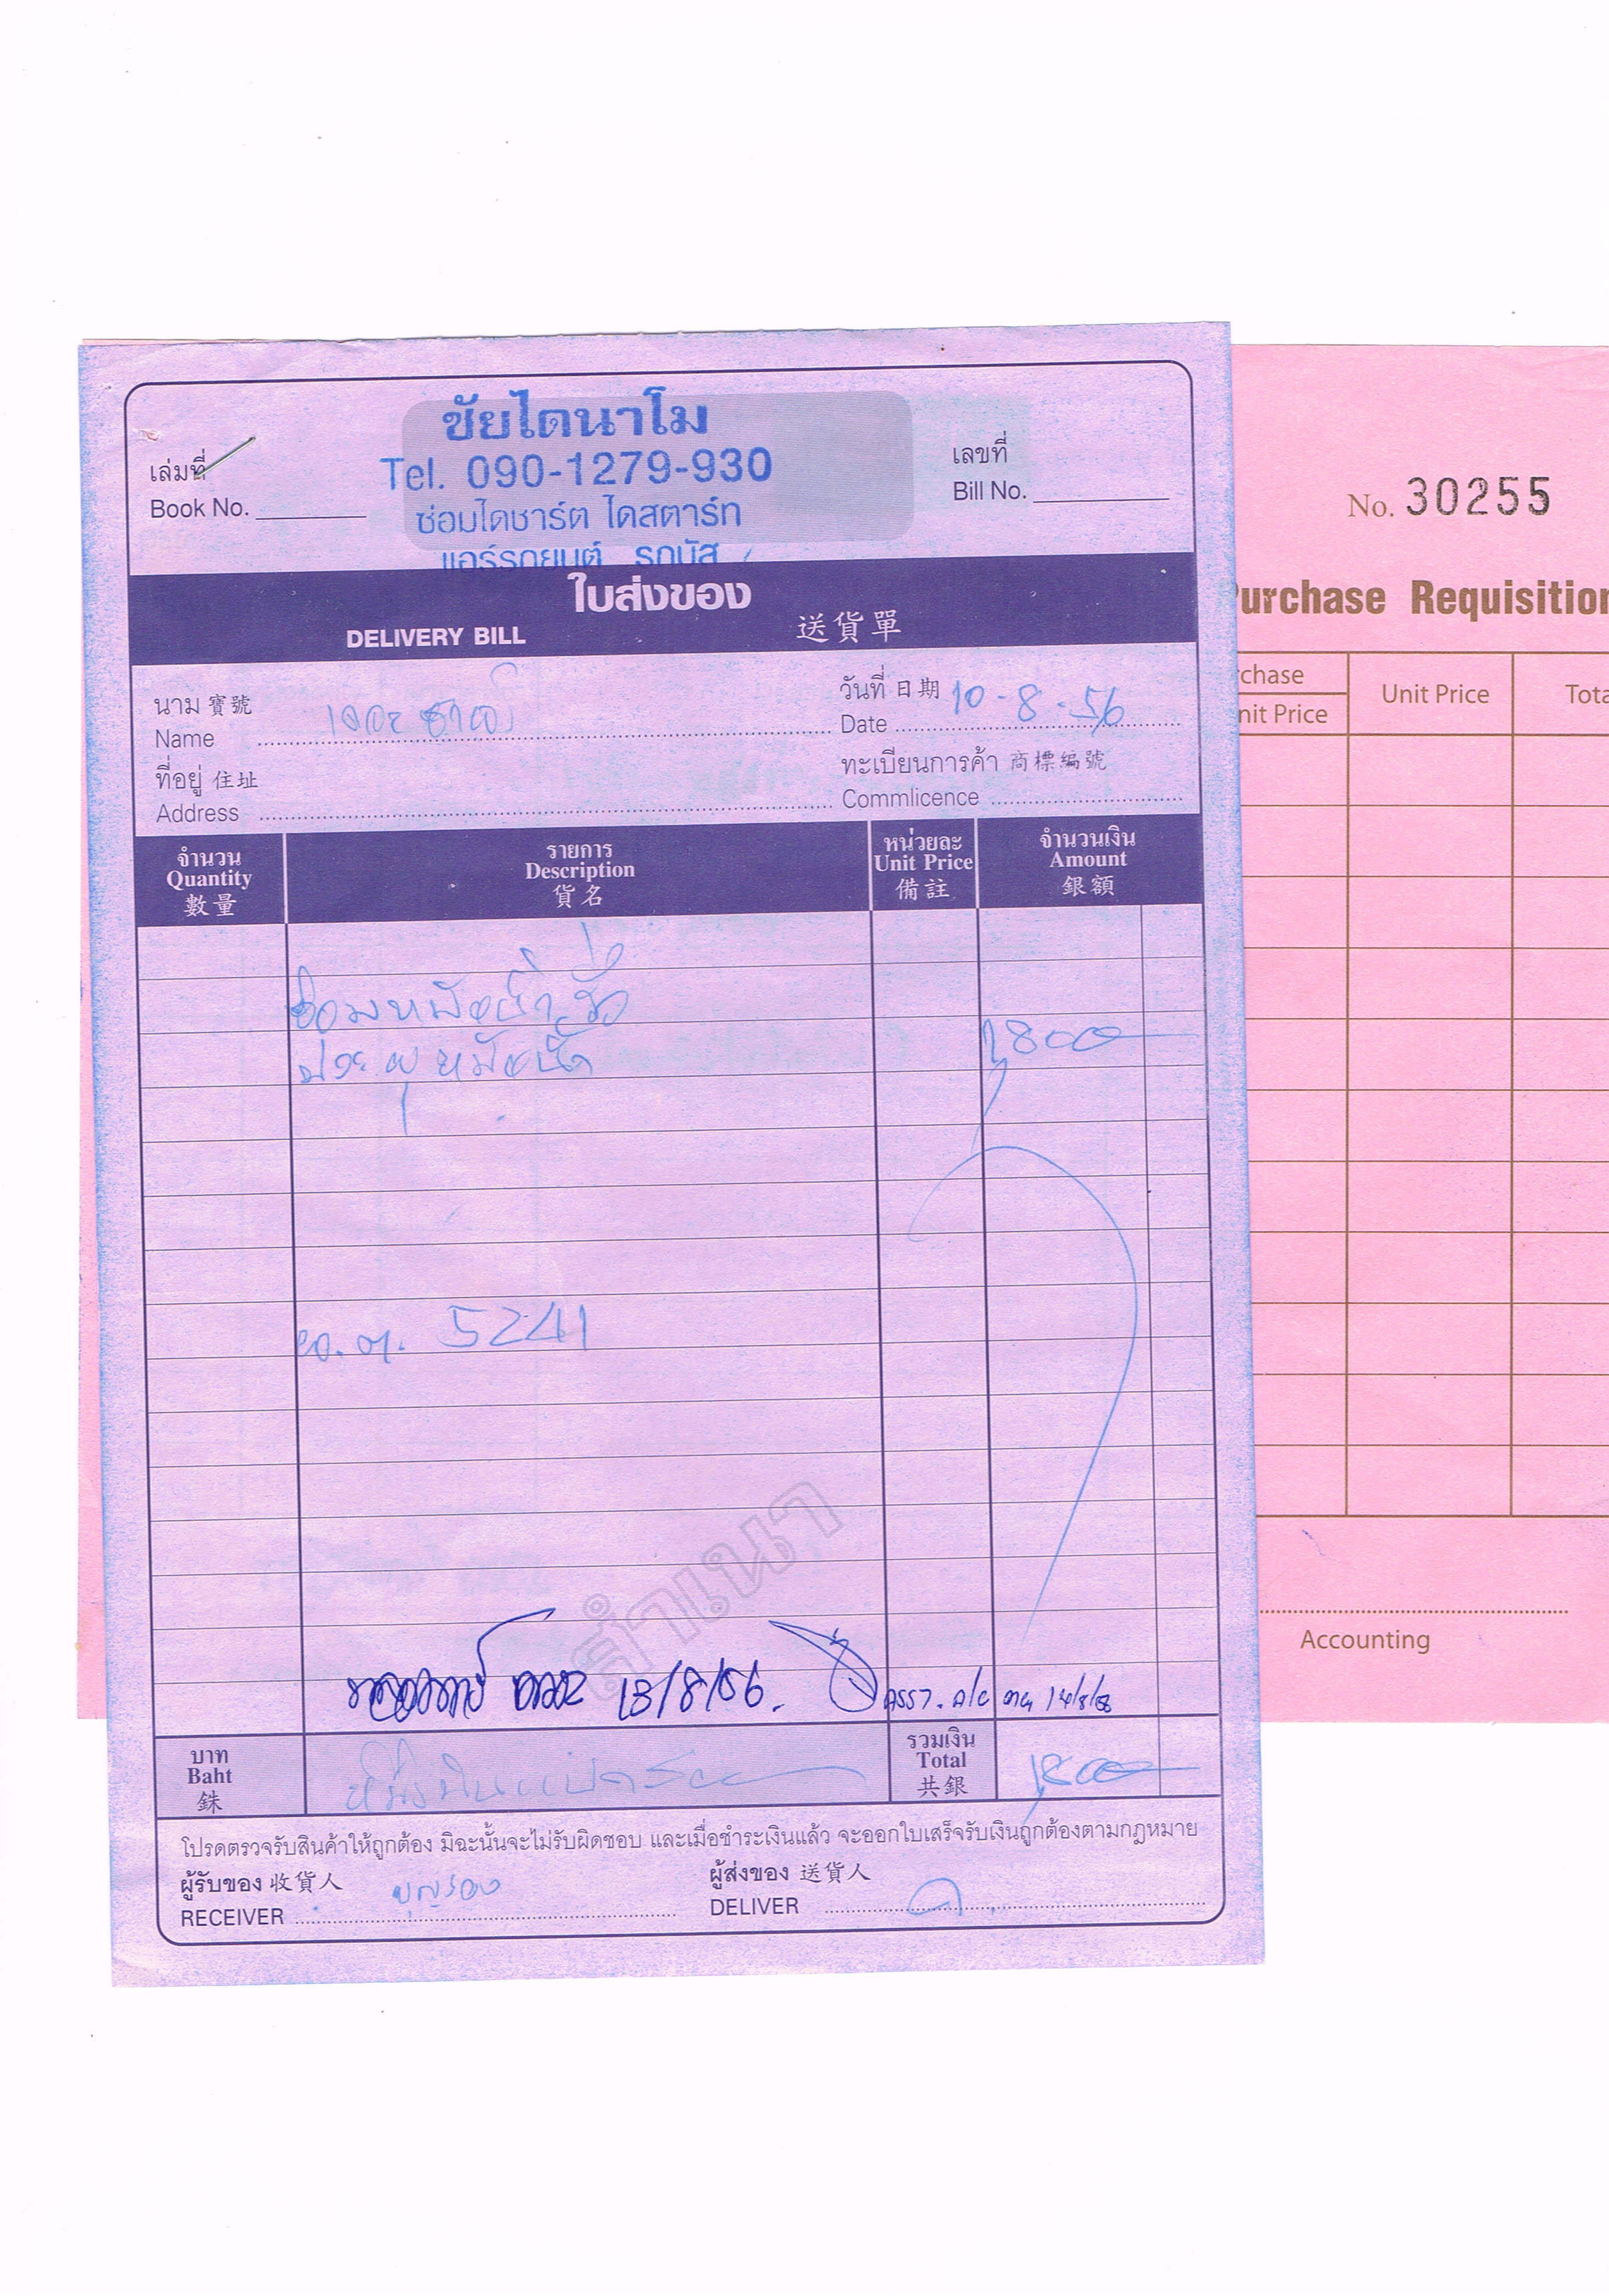 ชัยไดนาโม
Tel. 090-1279-930
ซ่อมไดชาร์ต ไดสตาร์ท
แอร์รถยนต์ รถบัส
เล่มที่
Book No.
เลขที่
Bill No.
ใบส่งของ
DELIVERY BILL 送貨單
นาม 寶號
Name
วันที่ 日期 10-8-56
Date
ที่อยู่ 住址
Address
ทะเบียนการค้า 商標編號
Commlicence
จำนวน
Quantity
數量
รายการ
Description
貨名
หน่วยละ
Unit Price
備註
จำนวนเงิน
Amount
銀額
ซ่อมหม้อน้ำรั่ว
ประตูหม้อน้ำ 1,800
5241
สำเนา
13/8/56.
บาท
Baht
銖
หนึ่งพันแปดร้อย
รวมเงิน
Total
共銀
1,800
โปรดตรวจรับสินค้าให้ถูกต้อง มิฉะนั้นจะไม่รับผิดชอบ และเมื่อชำระเงินแล้ว จะออกใบเสร็จรับเงินถูกต้องตามกฎหมาย
ผู้รับของ 收貨人
RECEIVER
ผู้ส่งของ 送貨人
DELIVER
No. 30255
Purchase Requisition
Unit Price
Unit Price
Accounting